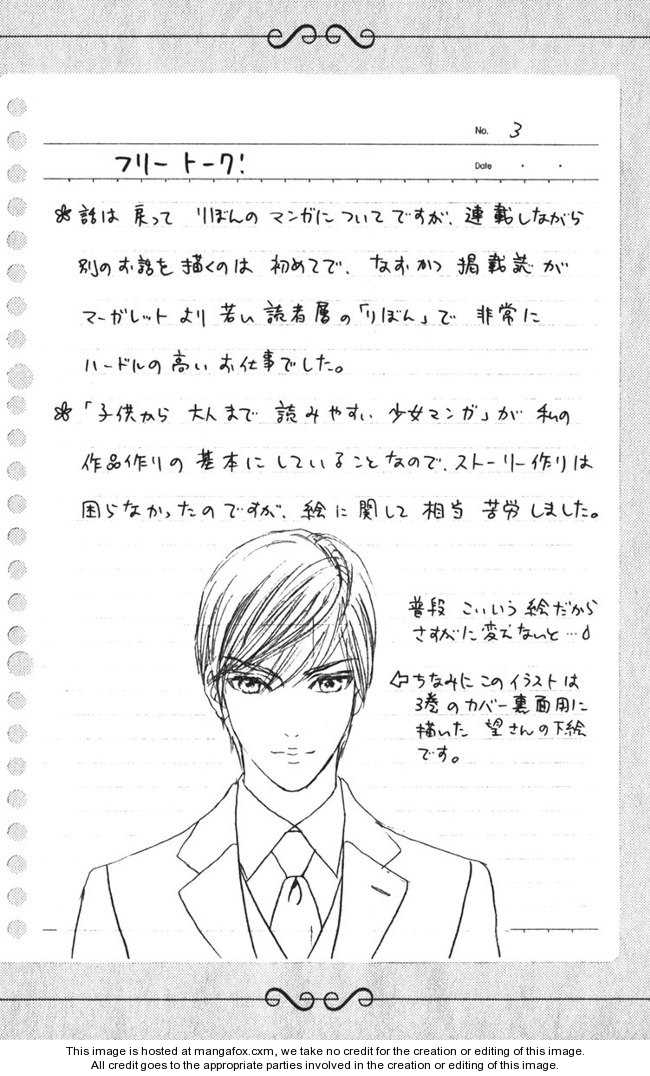 No. 3
フリートーク!
Date
話は 戻って りぼんの マンガに ついて ですが、連載しながら
別のお話を描くのは 初めてで、なおかつ 掲載誌が
マーガレットより 若い 読者層の「りぼん」で 非常に
ハードルの高いお仕事でした。
「子供から 大人まで 読みやすい 少女マンガ」が 私の
作品作りの 基本に している ことなので、ストーリー作りは
困らなかったのですが、絵に関して 相当 苦労しました。
普段 こいいう 絵だから
さすがに変えないと…
⇦ちなみに このイラストは
3巻のカバー裏面用に
描いた 望さんの下絵
です。
This image is hosted at mangafox.cxm, we take no credit for the creation or editing of this image.
All credit goes to the appropriate parties involved in the creation or editing of this image.